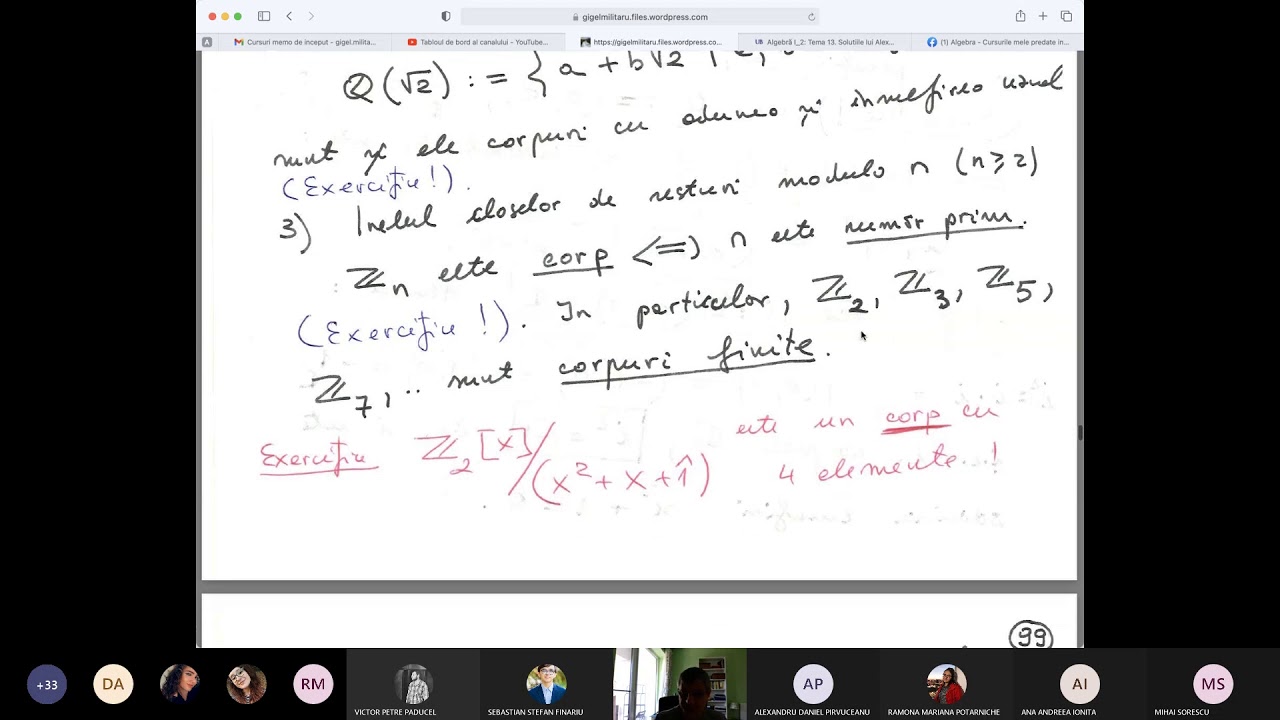 gigelmilitaru.files.wordpress.com
A
Cursuri memo de inceput - gigel.milita...
Tabloul de bord al canalului - YouTube...
https://gigelmilitaru.files.wordpress.co...
Algebră I_2: Tema 13. Solutiile lui Alex...
(1) Algebra - Cursurile mele predate in...
ℚ(√2) := { a + b√2 |
sunt și ele corpuri cu adunarea și inmulțirea uzual
(Exercițiu!).
3) Inelul claselor de resturi modulo n (n ≥ 2)
ℤn este corp <=> n este număr prim.
(Exercițiu!). In particular, ℤ2, ℤ3, ℤ5,
ℤ7, .. sunt corpuri finite.
Exercițiu ℤ2[X]/(X² + X + 1̂) este un corp cu
4 elemente!
99
+33
DA
RM
AP
AI
MS
VICTOR PETRE PADUCEL
SEBASTIAN STEFAN FINARIU
ALEXANDRU DANIEL PIRVUCEANU
RAMONA MARIANA POTARNICHE
ANA ANDREEA IONITA
MIHAI SORESCU